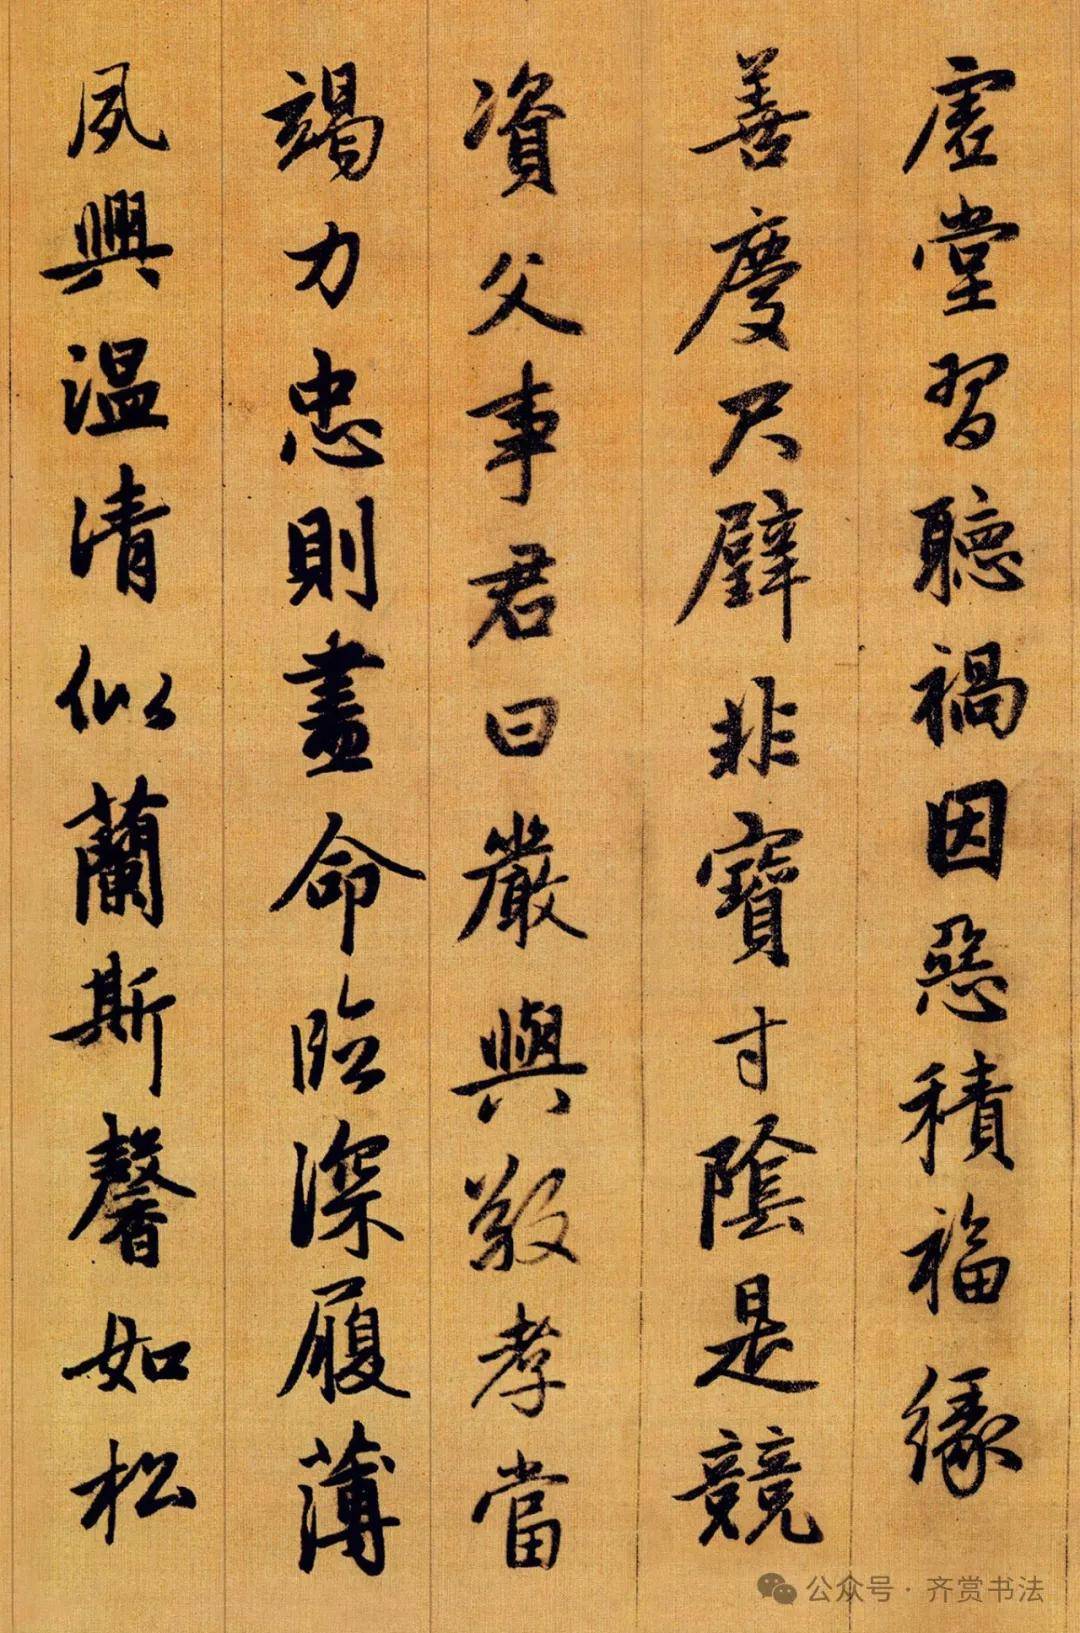 虛堂習聽禍因惡積福緣
善慶尺璧非寶寸陰是競
資父事君曰嚴與敬孝當
竭力忠則盡命臨深履薄
夙興溫清似蘭斯馨如松
公众号·齐赏书法